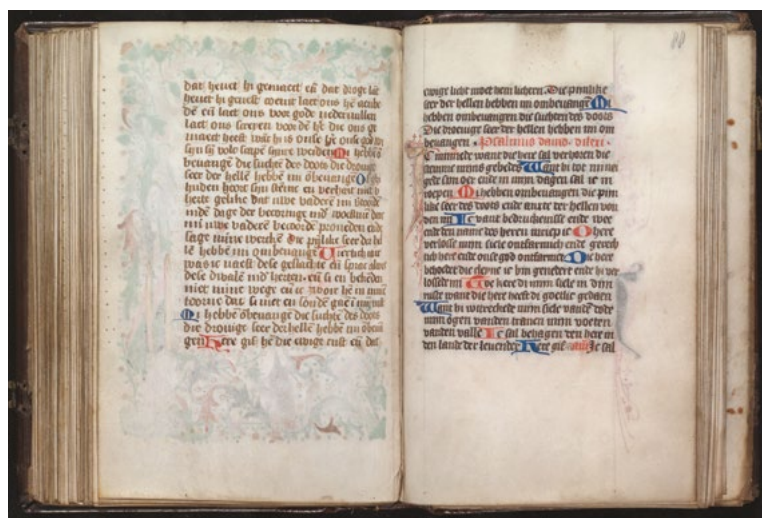 dat hevet hi gemaect en̄ dat droge lāt
laet ons voor gode nedervallen
laet ons screyen voor dē hē die ons ge
maect heeft want hi is onse hē onse god
sijn sijn volc scape sijnre weiden Mi hebbē
bevangē die suchtē des doots die drouige
seer der hellē hebbē mi obevangē O
huden hoort sijn stēme en verhart niet v
herte gelijc dat uwe vadere
indē dage der becoringe indē woestinē dat
mi uwe vaderē becoordē proveden ende
sagē mine wercke Die pijnlike seer der hel
lē hebbē mi ombevangē Viertich iaer
was ic naest dese geslachte en̄ sprac alwege
dese dwalē indē herten en̄ si en bekēden
niet mine wege en̄ ic swoer hē in minē
toorne dat si niet en sondē gaē in mijn rust
Mi hebbē obevangē die suchtē des doots
die drouige seer der hellē hebbē mi obevā
gen Here gif hē die ewige rust en̄ dat
88
ewige licht moet hem lichten Die pijnlike
seer der hellen hebben mi ombevangē Mi
hebben ombevangen die suchten des doots
Die drouige seer der hellen hebben mi om
bevangen. Psalmus davids. dilexi.
IC minnede want die here sal verhoren die
stemme mijns gebedes Want hi toe mi nei
gede sijn ore ende in minen dagen sal ic in
roepen Mi hebben ombevangen die pijn
like seer des doots ende anxte der hellen von
den mi Ic vant bedructenisse ende wee
ende den name des heren aenriep ic O here
verlosse mijn siele ontfarmich ende gerech
tich here ende onse god ontfarmet Die here
behoedet die cleyne ic bin genedert ende hi ver
lostede mi Goe kere di mijn siele in dijn
ruste want die here heeft di goetlic gedaen
Want hi wtreckede mijn siele vandē dode
mijn ogen vanden tranen mijn voeten
vanden valle Ic sal behagen den here in
den lande der levender Here gif. an. Ic sal